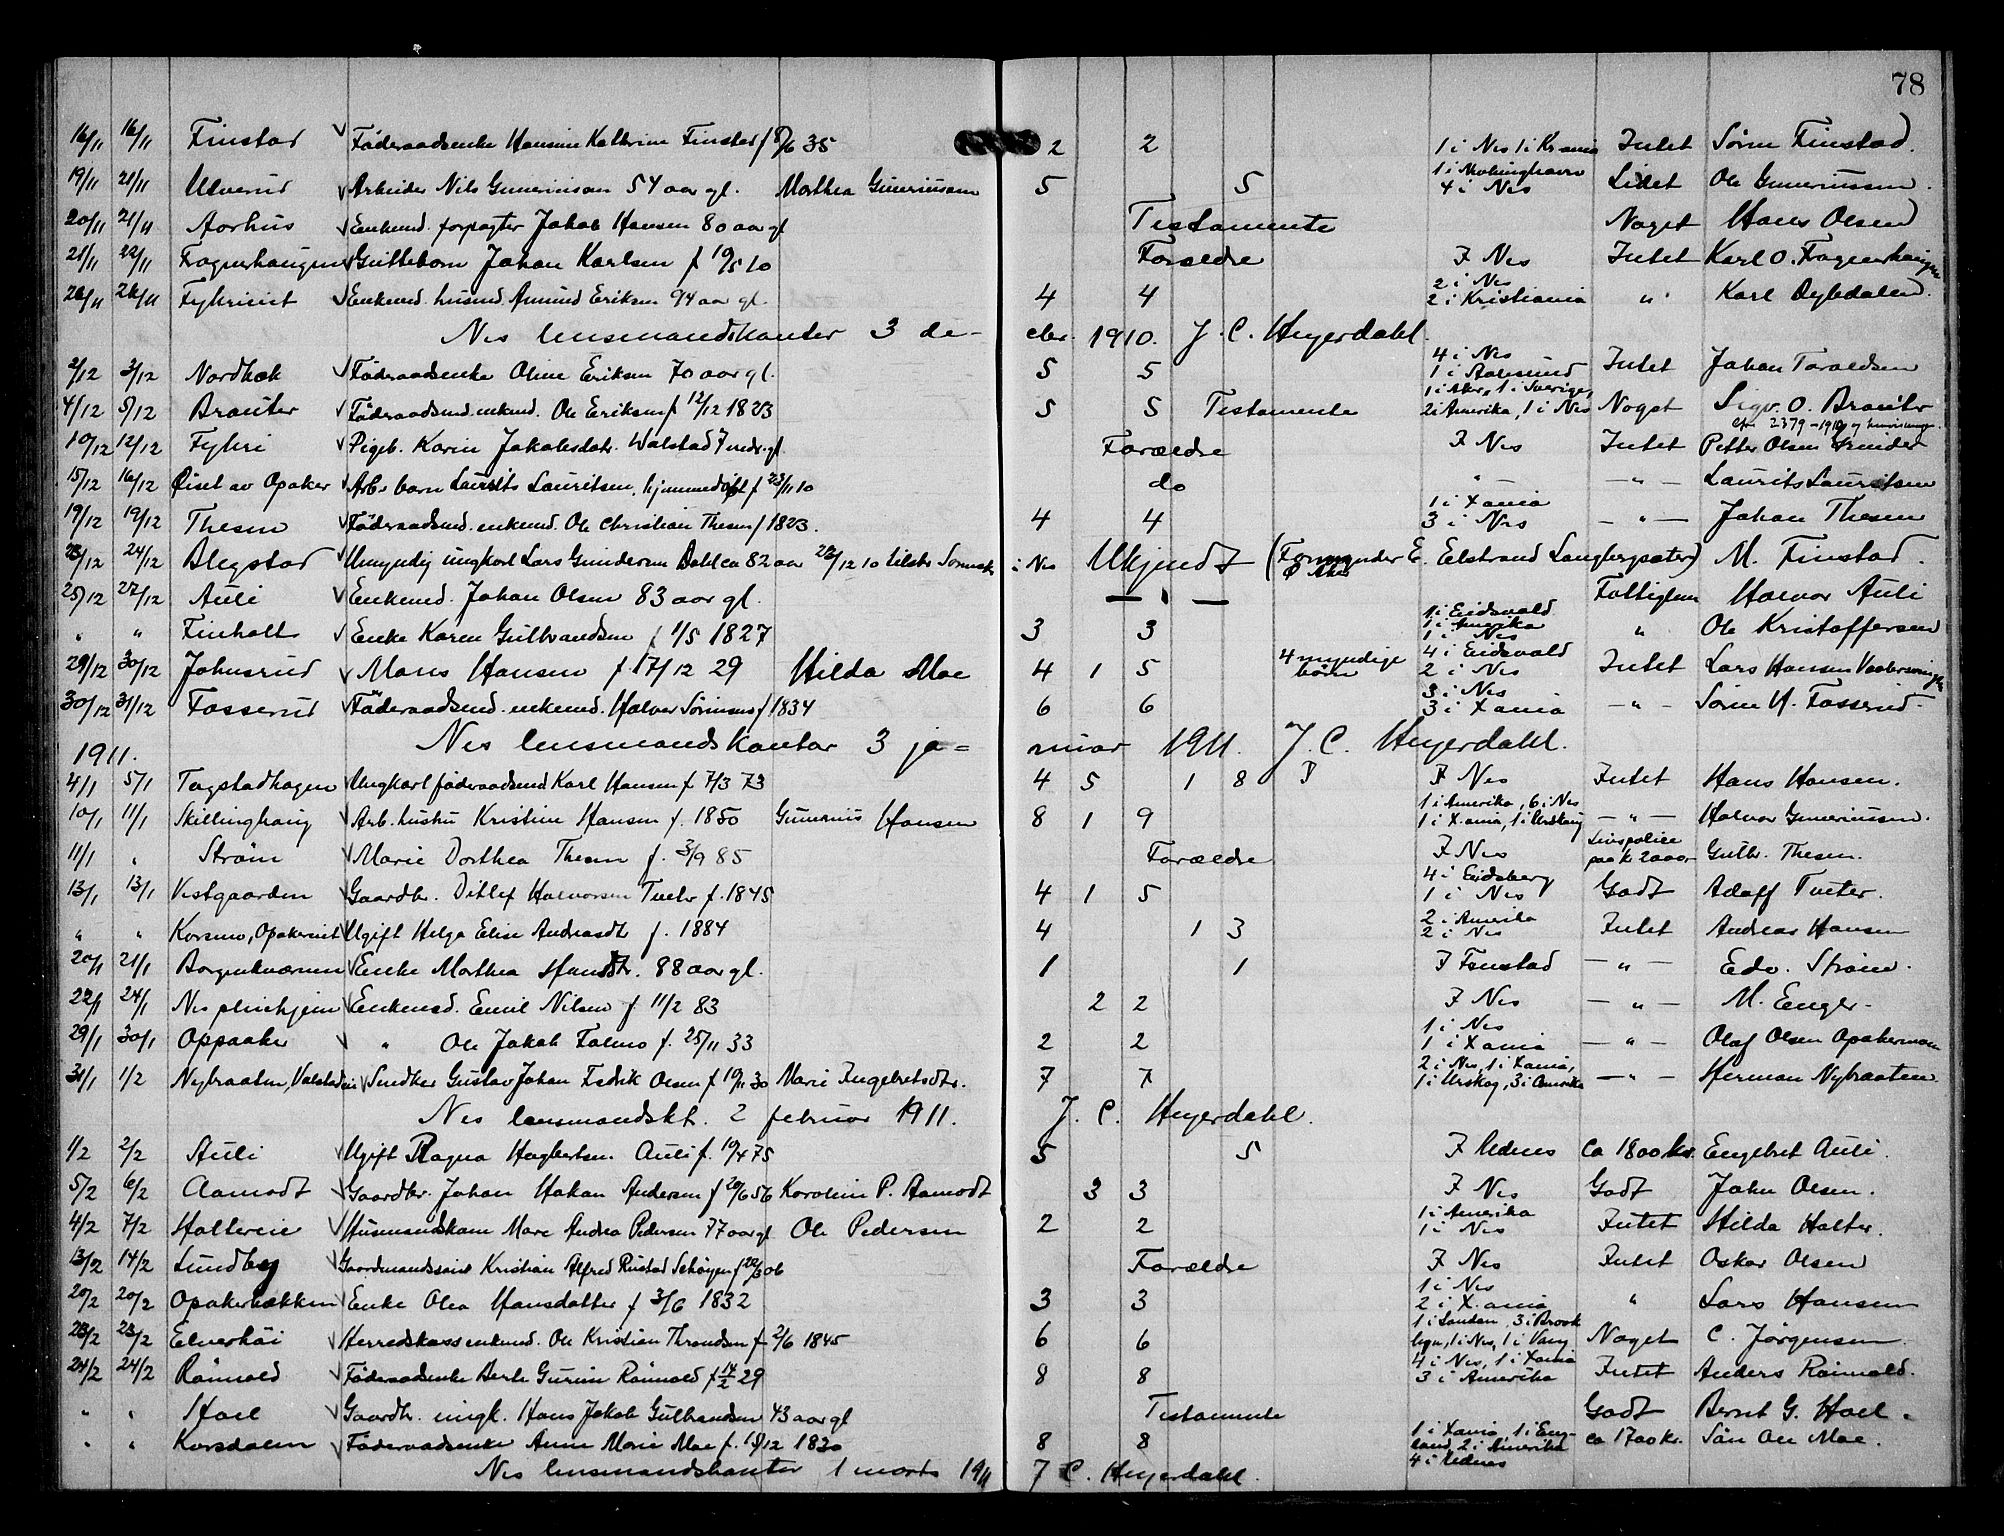 78
16/11 16/11 Finstad Föderaadsenke Hansine Kathrine Finstad f 35 2 2 1 i Nes 1 i Kr.ania Intet Sören Finstad
19/11 21/11 Ulverud Arbeider Nils Guneriussen 54 aar gl. Marthea Guneriussen 5 5 4 i Nes Lidet Ole Gunerussen
20/11 21/11 Aarhus Enkemd. forpagter Jakob Hansen 80 aar gl Testamente Noget Hans Olsen
21/11 22/11 Fagerhaugen Guttebarn Johan Karlsen f 19/5 10 Forældre I Nes Intet Karl O. Fagerhaugen
26/11 26/11 Fyhrieiet Enkemd. husmd Amund Eriksen 94 aar gl. 4 4 2 i Nes 2 i Kristiania " Karl Dybdalen
Nes lensmandskontor 3 decbr. 1910. J. C. Heyerdahl.
2/12 3/12 Nordbæk Föderaadsenke Oline Eriksen 70 aar gl. 5 5 4 i Nes 1 i Aalesund Intet Johan Toraldsen
4/12 5/12 Brauter Föderaadsmd. enkemd. Ole Eriksen f 12/12 1823 5 5 Testamente 1 i Aker, 1 i Sverige, 2 i Amerika, 1 i Nes Noget Sigv. O. Brauter
10/12 12/12 Fyhri Pigeb. Karin Jakobsdatr. Walstad 7 mdr. gl Forældre I Nes Intet Petter Olsen
15/12 16/12 Öiset av Opaker Arb. barn Laurits Lauritsen, hjemmedöpt f 23/11 10 do " — " — Laurits Lauritsen
19/12 19/12 Thesen Föderaadsmd. enkemd. Ole Christian Thesen f 1823. 4 4 1 i Xania 3 i Nes — " — Johan Thesen
23/12 24/12 Blegstad Umyndig ungkarl Lars Gundersen Dahl ca 82 aar 22/12 10 i Nes Ukjendt (Formynder E. Elstrand Langbergsæter) M. Finstad.
25/12 27/12 Auli Enkemd. Johan Olsen 83 aar gl. — " — Fattiglem Halvor Auli
" " Finholt Enke Karen Gulbrandsen f 1/5 1827 3 3 1 i Eidsvold 1 i Amerika 1 i Nes " Ole Kristoffersen
29/12 30/12 Johnsrud Hans Hansen f 17/12 29 Hilda Moe 4 1 5 4 myndige börn 4 i Eidsvold 2 i Nes Intet Lars Hansen
30/12 31/12 Fosserud Föderaadsmd. enkemd. Halvor Sörensen f 1834 6 6 3 i Nes 3 i Xania — " — Sören H. Fosserud.
1911. Nes lensmandskontor 3 januar 1911. J. C. Heyerdahl.
4/1 5/1 Togstadhagen Ungkarl föderaadsmd Karl Hansen f 7/3 73 4 5 1 8 I Nes Intet Hans Hansen.
10/1 11/1 Skillinghaug Arb. hustru Kristine Hansen f. 1850 Gunerius Hansen 8 1 9 1 i Amerika, 6 i Nes 1 i X.ania, 1 i Urskoug — " — Halvor Gunerussen.
11/1 " Ström Marie Dorthea Thesen f. 3/9 85 Forældre I Nes Livspolice paa kr 2000 Gulbr. Thesen.
13/1 13/1 Vestgaarden Gaardbr. Ditlef Halvorsen Tveter f. 1845 4 1 5 4 i Eidsberg 1 i Nes Godt Adolf Tveter.
" " Korsmo, Opakereiet Ugift Helga Elise Andreasdtr f. 1884 4 1 3 2 i Amerika 2 i Nes Intet Andreas Hansen
20/1 21/1 Borgenkværnen Enke Marthea Hansdtr. 88 aar gl. 1 1 I Fenstad — " — Edv. Ström.
22/1 24/1 Nes pleiehjem Enkemd. Emil Nilsen f 11/2 83 2 2 I Nes — " — M. Enger.
29/1 30/1 Oppaaker " Ole Jakob Folmo f. 25/11 33 2 2 1 i Nes 1 i Xania — " — Olaf Olsen Opakermoen
31/1 1/2 Nybraaten, Valstadeie Snedker Gustav Johan Fredrik Olsen f 19/11 30 Marie Ingebretsdtr. 7 7 2 i Nes, 1 i Xania, 1 i Urskog, 3 i Amerika — " — Herman Nybraaten.
Nes lensmandskt. 2 februar 1911. J. C. Heyerdahl.
1/2 2/2 Auli Ugift Ragna Hagbertsen Auli f. 19/4 75 5 5 I Udenes Ca 1800 kr. Engebret Auli.
5/2 6/2 Aamodt Gaardbr. Johan Hakon Andersen f 20/6 56 Karoline P. Aamodt 3 3 I Nes Godt John Olsen.
4/2 7/2 Haltereie Husmandskone Mare Andrea Pedersen 77 aar gl Ole Pedersen 2 2 1 i Amerika 1 i Nes Intet Hilda Halter.
13/2 14/2 Lundby Gaardmandssön Kristian Alfred Rustad Schöyen f 22/3 06 Forældre I Nes Intet Oskar Olsen
20/2 20/2 Opakerbakken Enke Olea Hansdatter f 3/6 1832 3 3 1 i Nes 2 i X.ania " Lars Hansen
23/2 23/2 Elverhöi Herredskass. enkemd. Ole Kristian Throndsen f 2/6 1845 6 6 1 i London, 3 i Brooklyn, 1 i Nes, 1 i Vang Noget C. Jörgensen
24/2 24/2 Römold Föderaadsenke Berte Gurine Römold f 14/2 29 8 8 4 i Nes, 1 i Xania 3 i Amerika Intet Anders Römold.
" " Hoel Gaardbr. ungk. Hans Jakob Gulbrandsen 43 aar gl Testamente Godt Bernt G. Hoel.
" " Korsdalen Föderaadsenke Anne Marie Moe f. 1820 8 8 1 i Xania, 1 i England, 2 i Amerika 4 i Udenes ca 1700 kr. Sön Ole Moe.
Nes lensmandskontor 1 marts 1911 J. C. Heyerdahl.